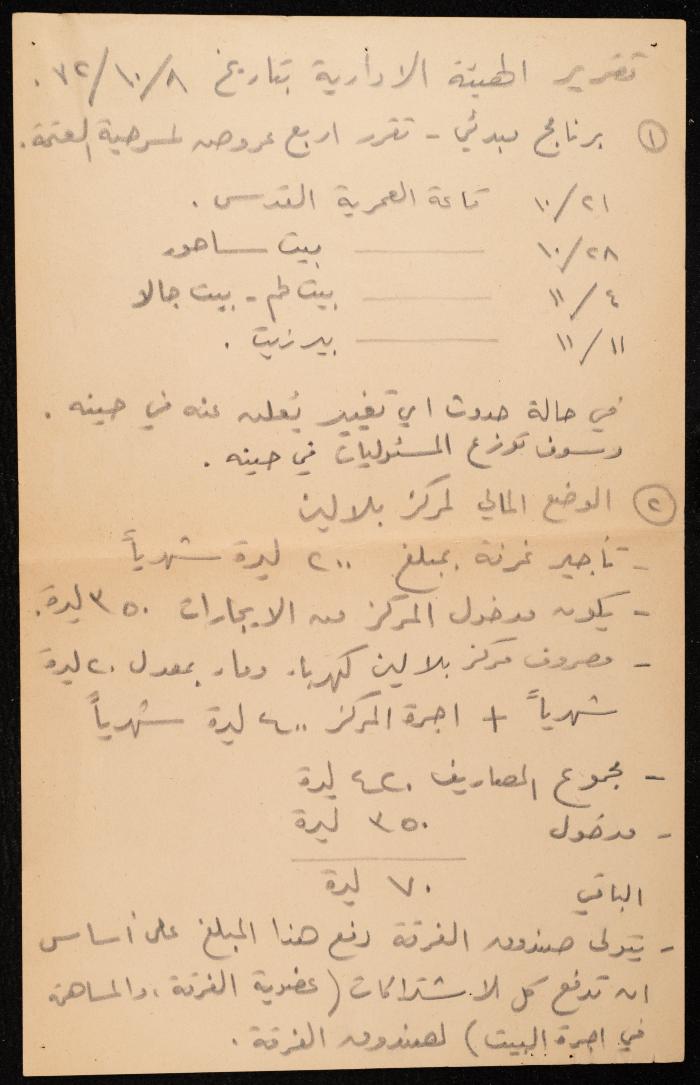 تقرير الهيئة الادارية بتاريخ ٧٢/١٠/٨ .
① برنامج مبدئي - تقرر اربع عروض لمسرحية العتمة .
١٠/٢١ قاعة العمرية القدس .
١٠/٢٨ ——— بيت ساحور
١١/٤ ——— بيت لحم - بيت جالا
١١/١١ ——— بير زيت .
في حالة حدوث اي تغيير يُعلن عنه في حينه .
وسوف توزع المسئوليات في حينه .
② الوضع المالي لمركز بلالين
- تأجير غرفة بمبلغ ٢٠٠ ليرة شهرياً
- يكون مدخول المركز من الايجارات ٣٥٠ ليرة .
- مصروف مركز بلالين كهرباء وماء بمعدل ٢٠ ليرة
شهرياً + اجرة المركز ٤٠٠ ليرة شهرياً
- مجموع المصاريف ٤٢٠ ليرة
- مدخول ٣٥٠ ليرة
الباقي ٧٠ ليرة
- يتولى صندوق الفرقة دفع هذا المبلغ على أساس
ان تدفع كل الاشتراكات (عضوية الفرقة ، والمساهمة
في اجرة البيت) لصندوق الفرقة .